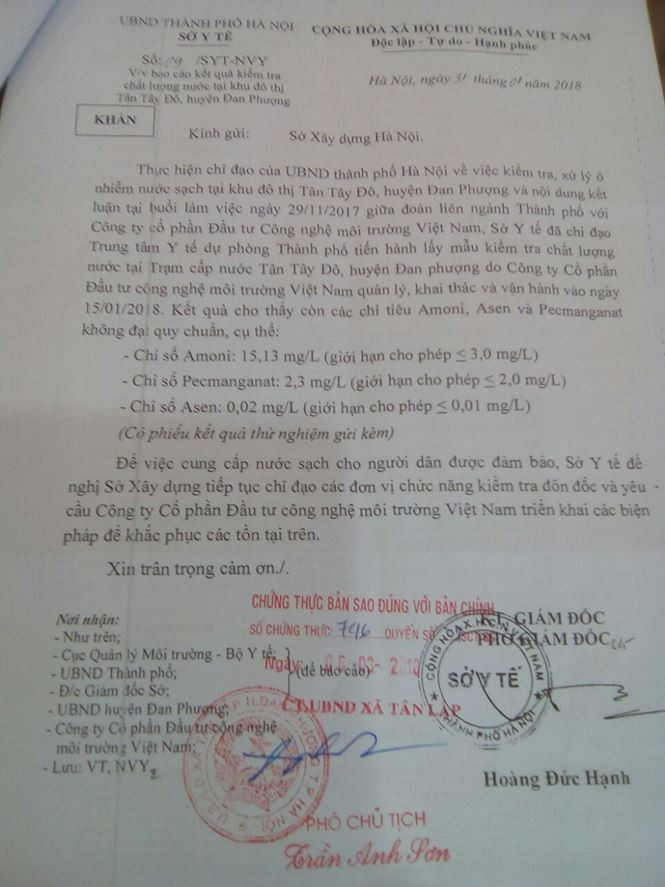 UBND THÀNH PHỐ HÀ NỘI
SỞ Y TẾ
CỘNG HÒA XÃ HỘI CHỦ NGHĨA VIỆT NAM
Độc lập - Tự do - Hạnh phúc
Số: /SYT-NVY
V/v báo cáo kết quả kiểm tra
chất lượng nước tại khu đô thị
Tân Tây Đô, huyện Đan Phượng
Hà Nội, ngày 31 tháng 01 năm 2018
KHẨN
Kính gửi: Sở Xây dựng Hà Nội.
Thực hiện chỉ đạo của UBND thành phố Hà Nội về việc kiểm tra, xử lý ô
nhiễm nước sạch tại khu đô thị Tân Tây Đô, huyện Đan Phượng và nội dung kết
luận tại buổi làm việc ngày 29/11/2017 giữa đoàn liên ngành Thành phố với
Công ty cổ phần Đầu tư Công nghệ môi trường Việt Nam, Sở Y tế đã chỉ đạo
Trung tâm Y tế dự phòng Thành phố tiến hành lấy mẫu kiểm tra chất lượng
nước tại Trạm cấp nước Tân Tây Đô, huyện Đan phượng do Công ty Cổ phần
Đầu tư công nghệ môi trường Việt Nam quản lý, khai thác và vận hành vào ngày
15/01/2018. Kết quả cho thấy còn các chỉ tiêu Amoni, Asen và Pecmanganat
không đạt quy chuẩn, cụ thể:
- Chỉ số Amoni: 15,13 mg/L (giới hạn cho phép ≤ 3,0 mg/L)
- Chỉ số Pecmanganat: 2,3 mg/L (giới hạn cho phép ≤ 2,0 mg/L)
- Chỉ số Asen: 0,02 mg/L (giới hạn cho phép ≤ 0,01 mg/L)
(Có phiếu kết quả thử nghiệm gửi kèm)
Để việc cung cấp nước sạch cho người dân được đảm bảo, Sở Y tế đề
nghị Sở Xây dựng tiếp tục chỉ đạo các đơn vị chức năng kiểm tra đôn đốc và yêu
cầu Công ty Cổ phần Đầu tư công nghệ môi trường Việt Nam triển khai các biện
pháp để khắc phục các tồn tại trên.
Xin trân trọng cảm ơn./.
CHỨNG THỰC BẢN SAO ĐÚNG VỚI BẢN CHÍNH
SỐ CHỨNG THỰC: 746 QUYỂN SỐ
Ngày
CT.UBND XÃ TÂN LẬP
PHÓ CHỦ TỊCH
Trần Anh Sơn
Nơi nhận:
- Như trên;
- Cục Quản lý Môi trường - Bộ Y tế;
- UBND Thành phố;
(để báo cáo)
- Đ/c Giám đốc Sở;
- UBND huyện Đan Phượng;
- Công ty Cổ phần Đầu tư công nghệ
môi trường Việt Nam;
- Lưu: VT, NVY
KT. GIÁM ĐỐC
PHÓ GIÁM ĐỐC
SỞ Y TẾ
THÀNH PHỐ HÀ NỘI
Hoàng Đức Hạnh